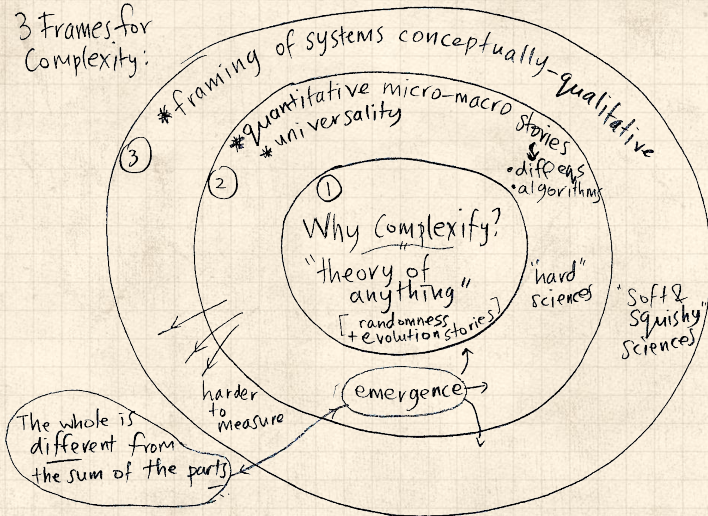 3 Frames for
Complexity:
③
*framing of systems conceptually-qualitative
②
*quantitative micro-macro stories
*universality
•diff eqs
•algorithms
①
Why Complexify?
"theory of
anything"
[randomness
+evolution stories]
"hard"
sciences
"soft &
squishy"
sciences
harder
to
measure
emergence
The whole is
different from
the sum of the parts